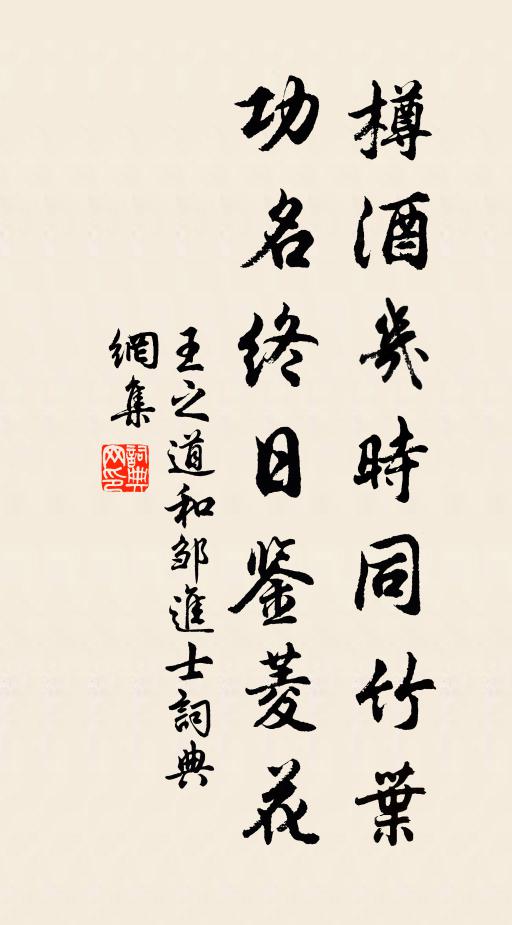 樽酒幾時同竹葉
功名終日鑒菱花
王之道和邹進士詞典
網集
詞典
网印